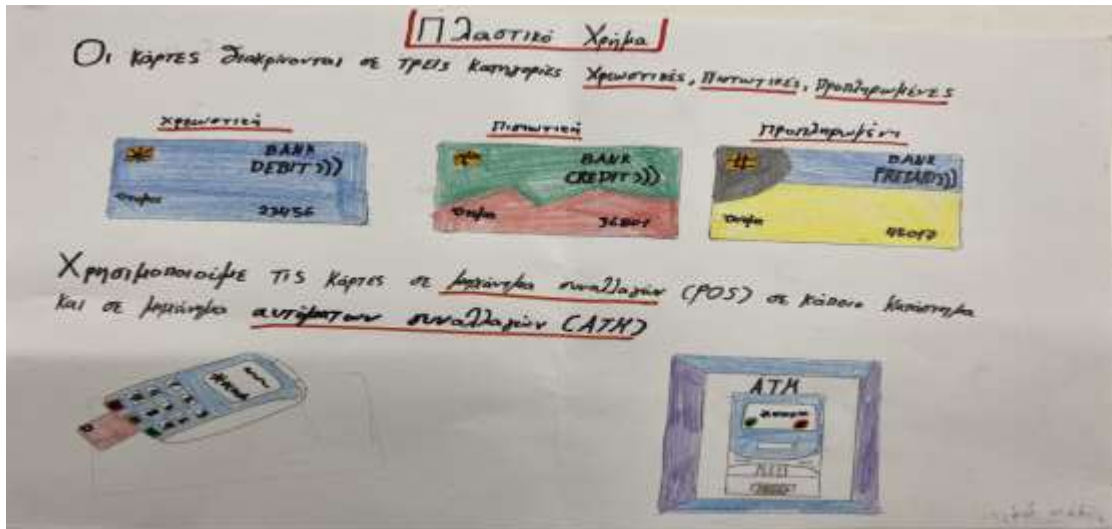 Πλαστικό Χρήμα
Οι κάρτες διακρίνονται σε τρεις κατηγορίες Χρεωστικές, Πιστωτικές, Προπληρωμένες
Χρεωστική
Πιστωτική
Προπληρωμένη
BANK
DEBIT
Όνομα
23456
BANK
CREDIT
Όνομα
36801
BANK
PREPAID
Όνομα
45017
Χρησιμοποιούμε τις κάρτες σε μηχάνημα συναλλαγών (POS) σε κάποιο κατάστημα
και σε μηχάνημα αυτόματων συναλλαγών (ATM)
ATM